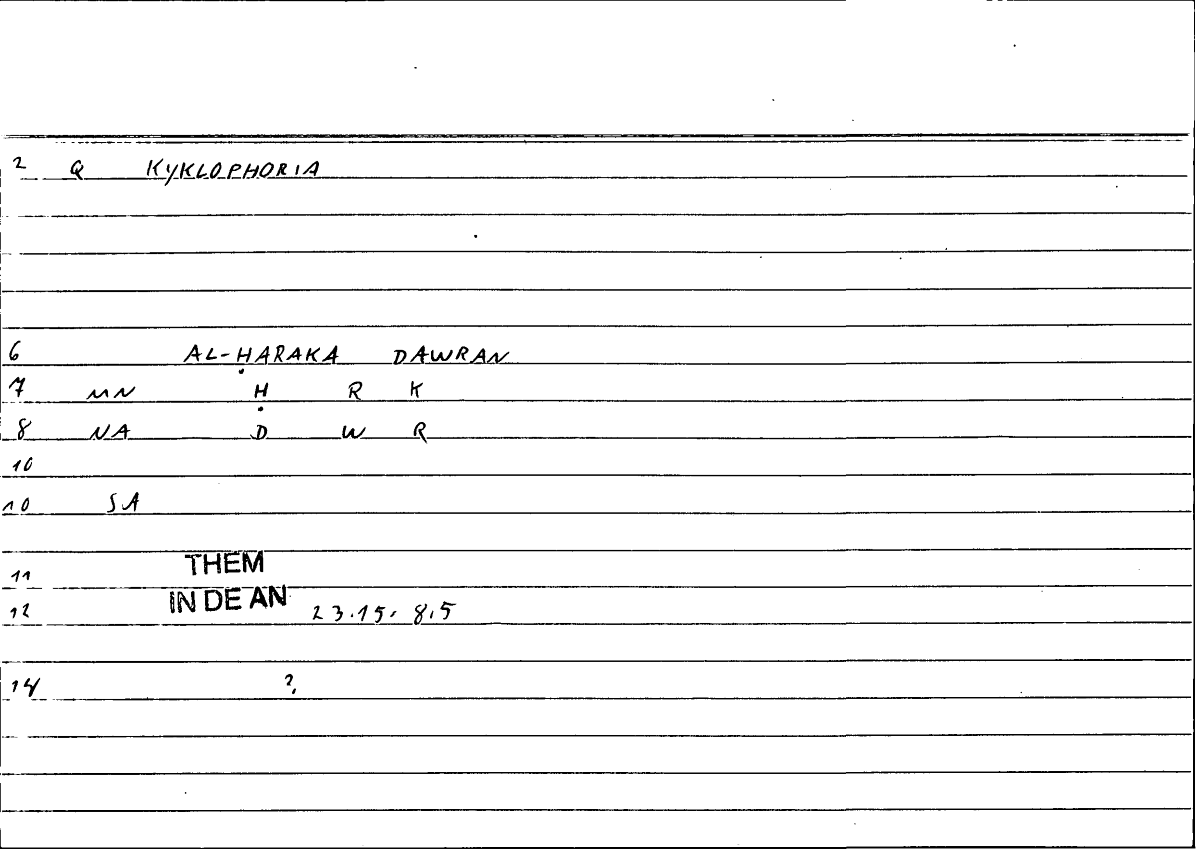 2 Q KYKLOPHORIA
6 AL-ḤARAKA DAWRAN
7 MN Ḥ R K
8 NA D W R
10
10 SA
11 THEM
12 IN DE AN 23.15, 8.5
14 ?